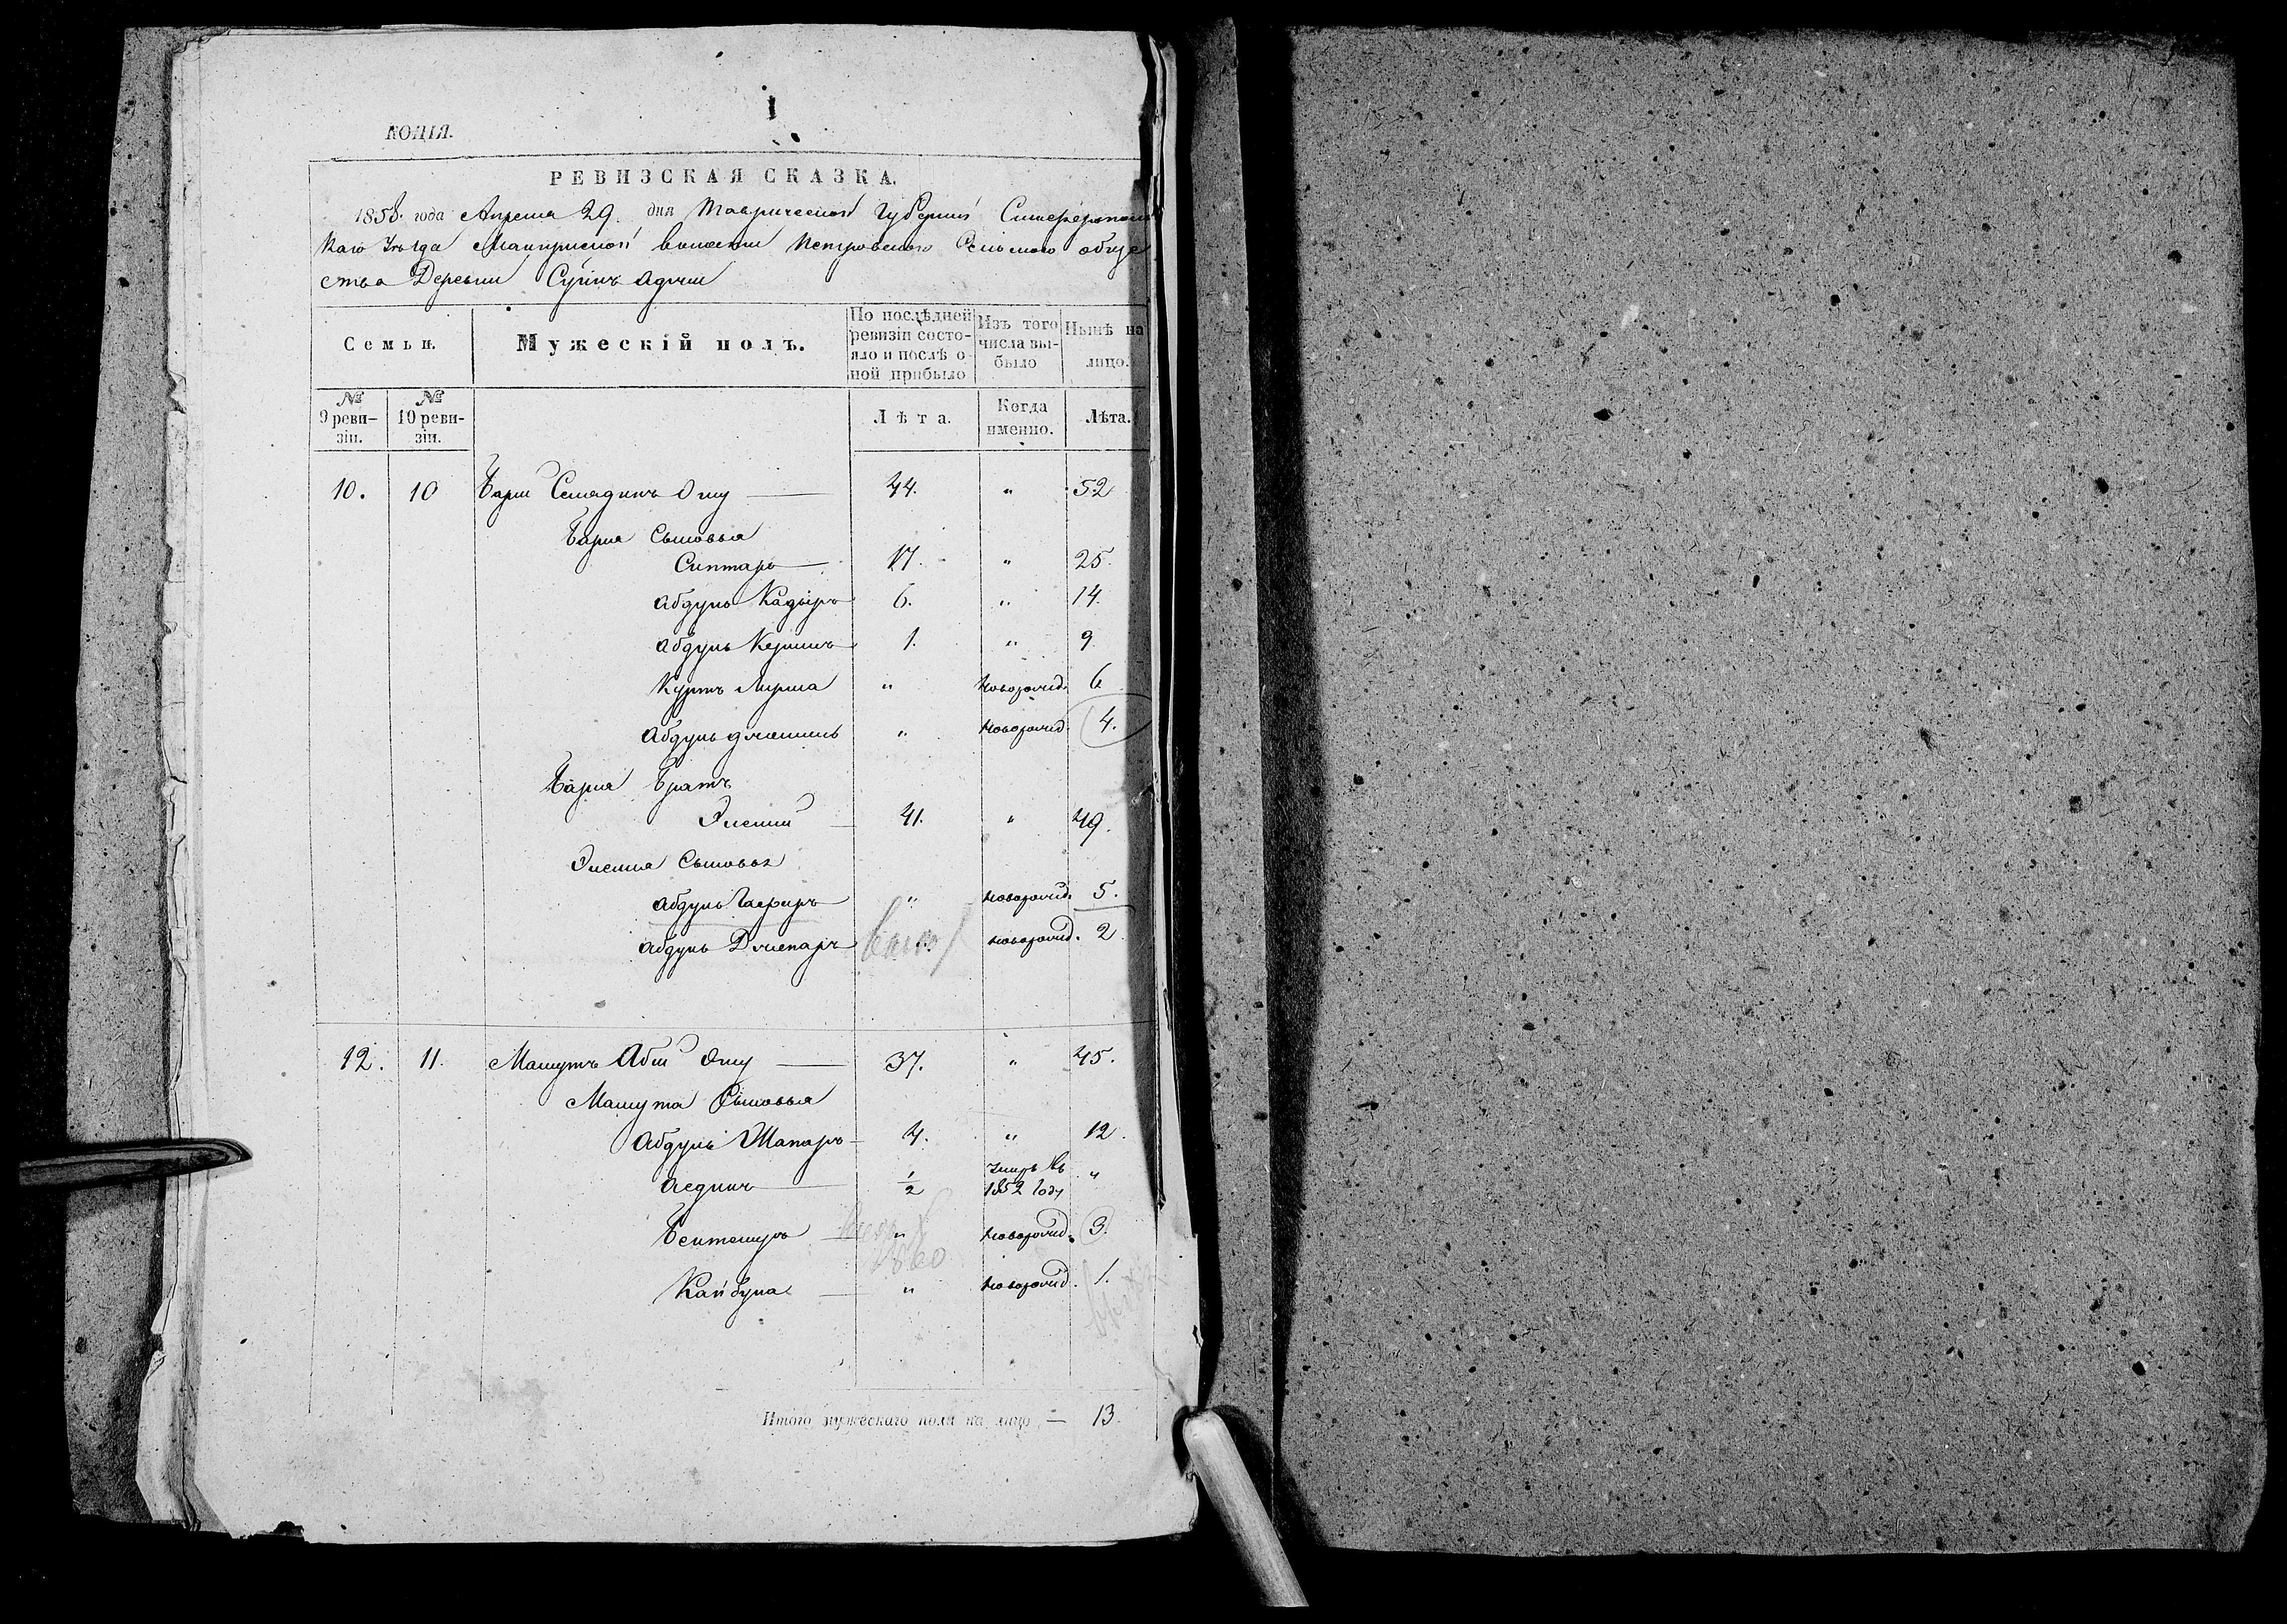 КОПІЯ.
РЕВИЗСКАЯ СКАЗКА.
1858. года Апреля 29. дня Таврической Губерніи Симферополь
скаго Уѣзда волости Петровскаго Сельскаго обще
ства Деревни
Семьи. Мужескій полъ. По послѣдней ревизіи состояло и послѣ оной прибыло Изъ того числа выбыло Нынѣ на лицо.
№ 9 ревизіи. № 10 ревизіи. Лѣта. Когда именно. Лѣта.
10. 10 Бари Сеитадинъ Оглу 44. " 52
Бария Сыновья
Сиптаръ 17. " 25.
Абдуль Кадыръ 6. " 14.
Абдуль Керимъ 1. " 9
Куртъ Мурза " Новорожд. 6
Абдуль джемиль " Новорожд. 4.
Бария Братъ
41. " 49.
Сыновья
Абдуль Гафаръ " Новорожд. 5.
Абдуль Джепаръ " новорожд. 2
12. 11. Мамутъ Абли Оглу 37. " 45.
Мамута Сыновья
Абдуль Шапаръ 4. " 12.
Асдинъ 1/2 умеръ въ 1852 году "
Бектемиръ " Новорожд. 3.
1860
Кайбула " Новорожд. 1.
Итого мужескаго пола на лицо — 13.